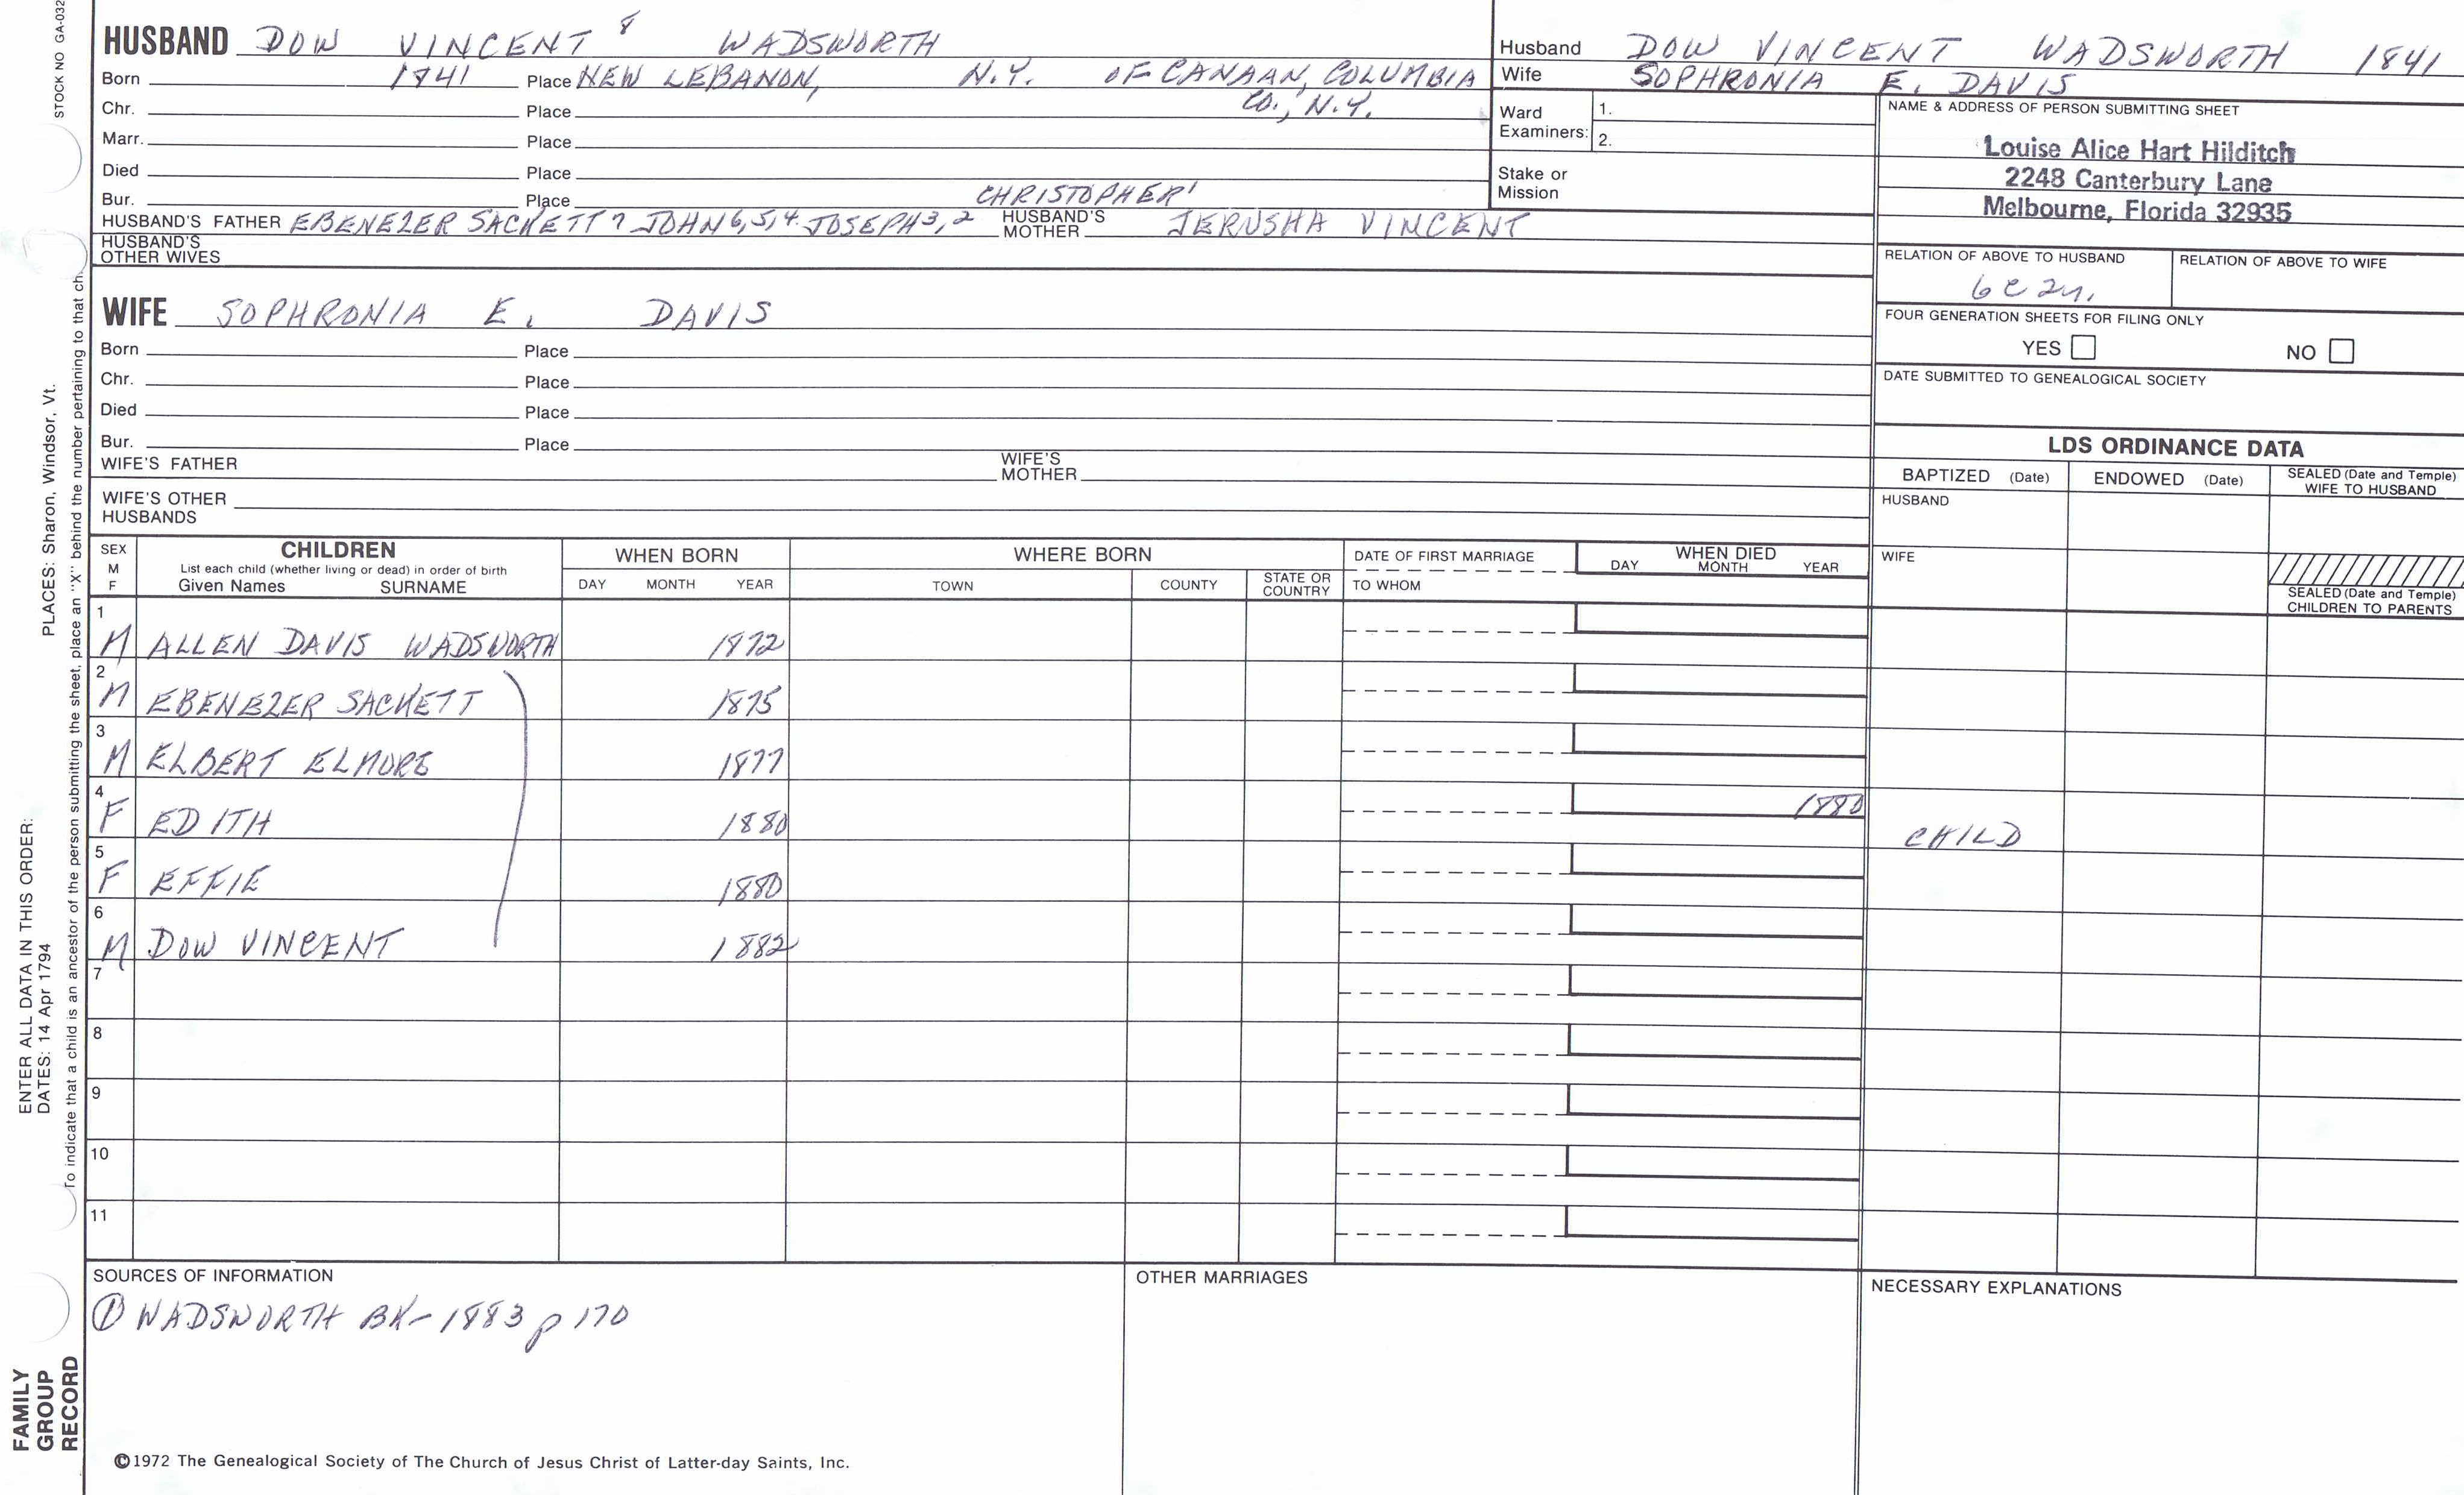 STOCK NO GA-032
HUSBAND DOW VINCENT 8 WADSWORTH
Born 1841 Place NEW LEBANON, N.Y. OF CANAAN, COLUMBIA CO., N.Y.
Chr. Place
Marr. Place
Died Place
Bur. Place
CHRISTOPHER 1
HUSBAND'S FATHER EBENEZER SACKETT 7 JOHN 6,5,4. JOSEPH 3,2 HUSBAND'S MOTHER JERUSHA VINCENT
HUSBAND'S OTHER WIVES
WIFE SOPHRONIA E. DAVIS
Born Place
Chr. Place
Died Place
Bur. Place
WIFE'S FATHER WIFE'S MOTHER
WIFE'S OTHER HUSBANDS
Husband DOW VINCENT WADSWORTH 1841
Wife SOPHRONIA E. DAVIS
Ward Examiners: 1.
2.
Stake or Mission
NAME & ADDRESS OF PERSON SUBMITTING SHEET
Louise Alice Hart Hilditch
2248 Canterbury Lane
Melbourne, Florida 32935
RELATION OF ABOVE TO HUSBAND RELATION OF ABOVE TO WIFE
6c 2r.
FOUR GENERATION SHEETS FOR FILING ONLY
YES NO
DATE SUBMITTED TO GENEALOGICAL SOCIETY
LDS ORDINANCE DATA
BAPTIZED (Date) ENDOWED (Date) SEALED (Date and Temple) WIFE TO HUSBAND
HUSBAND
WIFE
SEALED (Date and Temple) CHILDREN TO PARENTS
SEX M F CHILDREN WHEN BORN WHERE BORN DATE OF FIRST MARRIAGE WHEN DIED
List each child (whether living or dead) in order of birth
Given Names SURNAME DAY MONTH YEAR TOWN COUNTY STATE OR COUNTRY TO WHOM DAY MONTH YEAR
1 M ALLEN DAVIS WADSWORTH 1872
2 M EBENEZER SACKETT 1875
3 M ELBERT ELMORE 1877
4 F EDITH 1880 1880 CHILD
5 F EFFIE 1880
6 M DOW VINCENT 1882
7
8
9
10
11
SOURCES OF INFORMATION
① WADSWORTH BK-1883 p 170
OTHER MARRIAGES
NECESSARY EXPLANATIONS
©1972 The Genealogical Society of The Church of Jesus Christ of Latter-day Saints, Inc.
FAMILY GROUP RECORD
ENTER ALL DATA IN THIS ORDER:
DATES: 14 Apr 1794
PLACES: Sharon, Windsor, Vt.
To indicate that a child is an ancestor of the person submitting the sheet, place an "X" behind the number pertaining to that ch